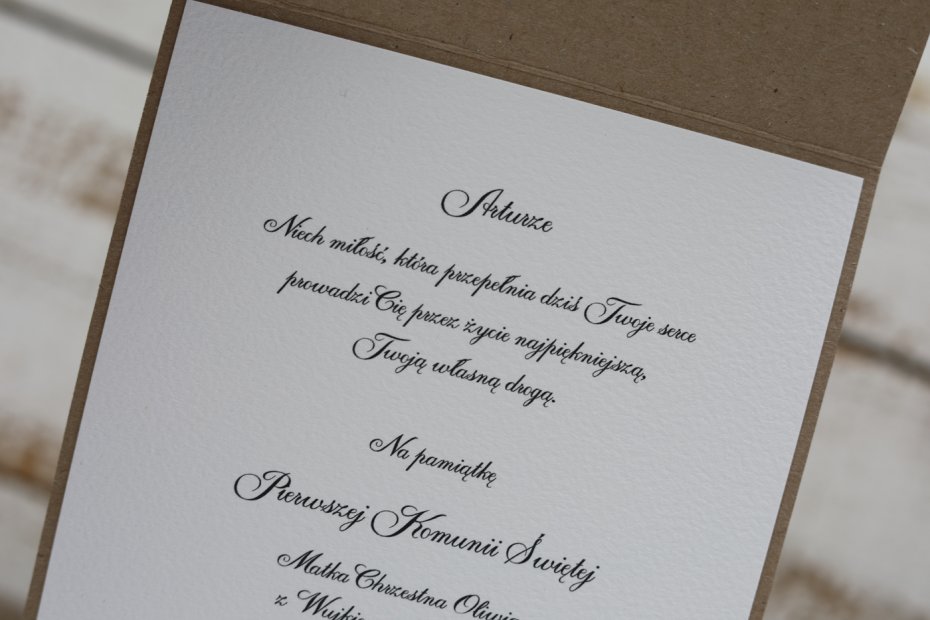 Arturze
Niech miłość, która przepełnia dziś Twoje serce
prowadzi Cię przez życie najpiękniejszą,
Twoją własną drogą.
Na pamiątkę
Pierwszej Komunii Świętej
Matka Chrzestna Oliwia
z